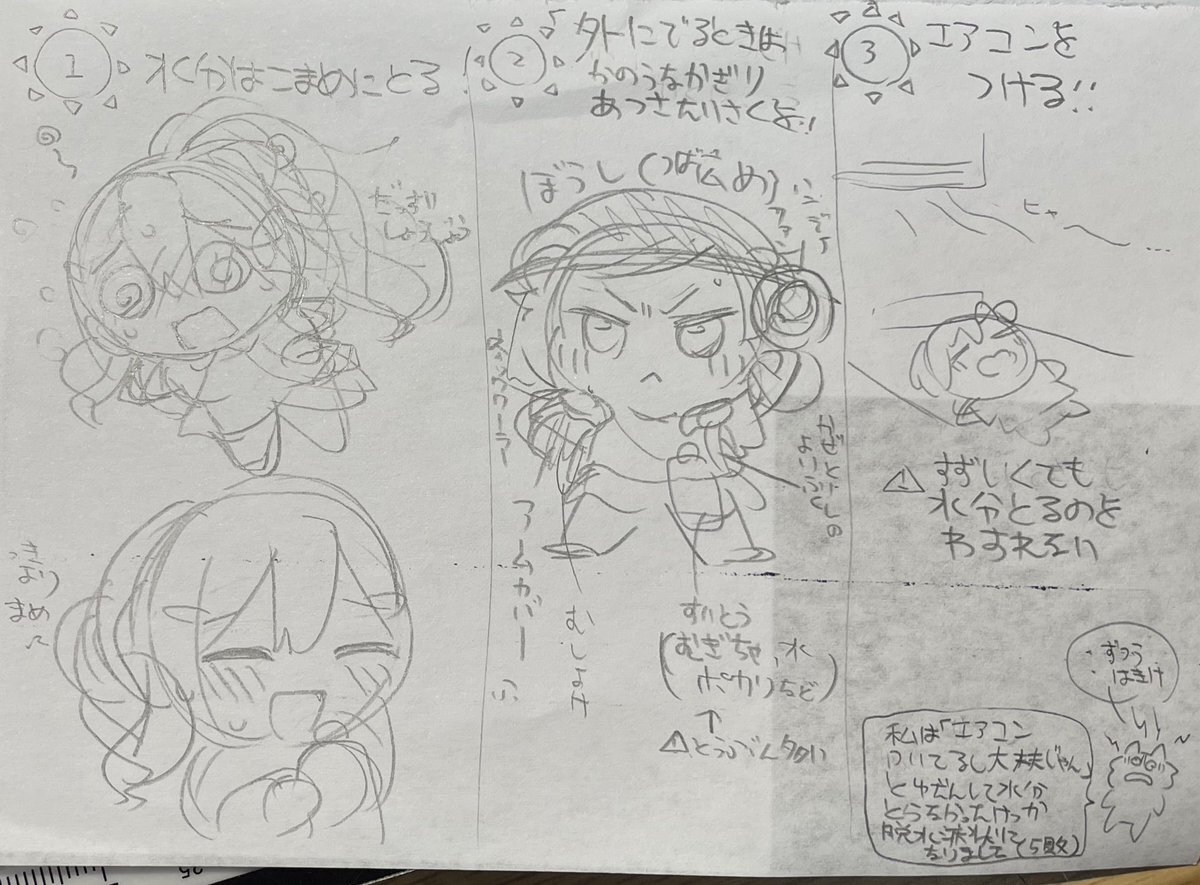 1
水分はこまめにとる!
だっすい
しょうじょう
つき
より
まめ
2
外にでるときは
かのうなかぎり
あつさたいさくを!!
ぼうし(つば広め)
ハンディ
ファン
ネッククーラー
かぜとおしの
よいふく
アームカバー
むしよけ
すいとう
(むぎちゃ、水
ポカリなど)
↑
⚠とうぶん多い
3
エアコンを
つける!!
ヒャー…
⚠すずしくても
水分とるのを
わすれない
・ずつう
・はきけ
私は「エアコン
ついてるし大丈夫じゃん」
とゆだんして水分
とらなかったけっか
脱水症状に
なりまして(5敗)